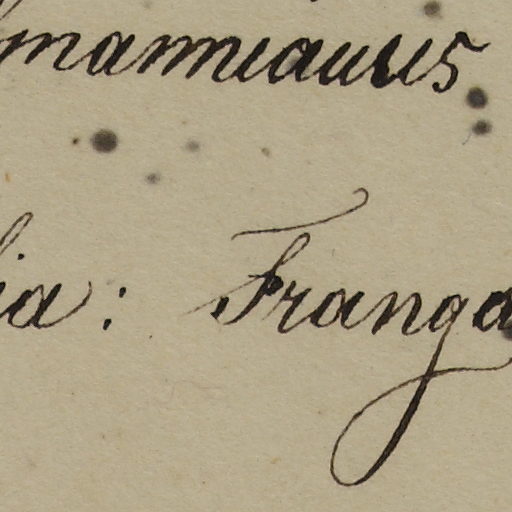 mannianus
ia: Franga